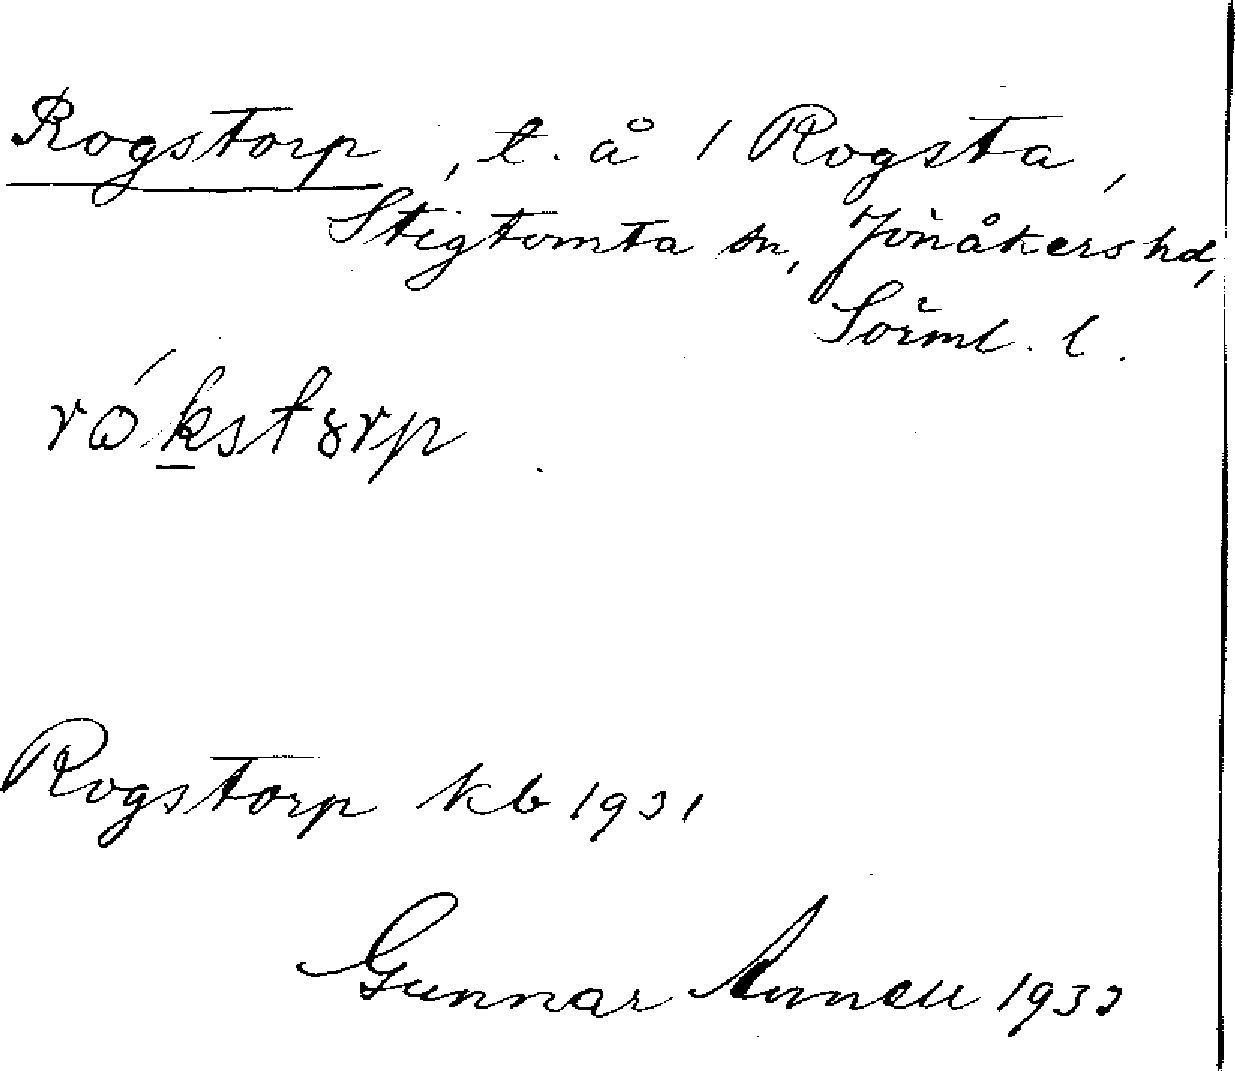 Rogstorp, t. å 1 Rogsta,
Stigtomta sn, Jönåkers hd,
Sörml. l.
rókstorp
Rogstorp kb 1931
Gunnar 1933